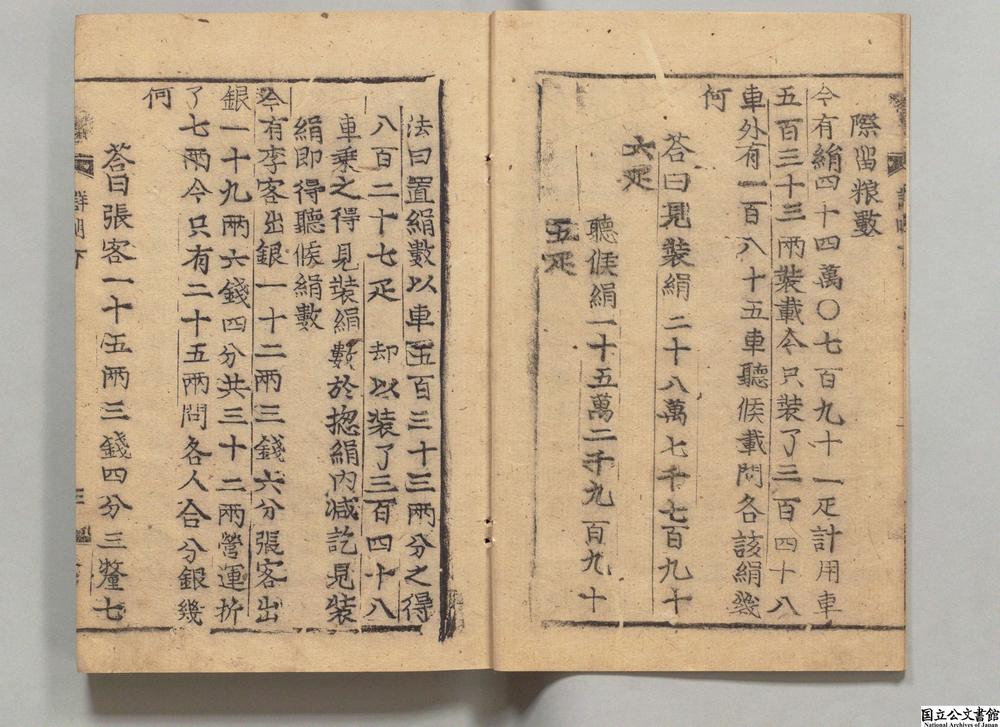 際畱粮數
今有絹四十四萬〇七百九十一疋計用車
五百三十三兩裝載今只裝了三百四十八
車外有一百八十五車聽候載問各該絹幾
何
荅曰見裝絹二十八萬七千七百九十
六疋
聽候絹一十五萬二千九百九十
五疋
法曰置絹數以車五百三十三兩分之得
八百二十七疋 却以裝了三百四十八
車乗之得見裝絹數於揔絹內减訖見裝
絹即得聽候絹數
今有李客出銀一十二兩三錢六分張客出
銀一十九兩六錢四分共三十二兩營運折
了七兩今只有二十五兩問各人合分銀幾
何
荅曰張客一十五兩三錢四分三釐七
詳明下
国立公文書館
National Archives of Japan